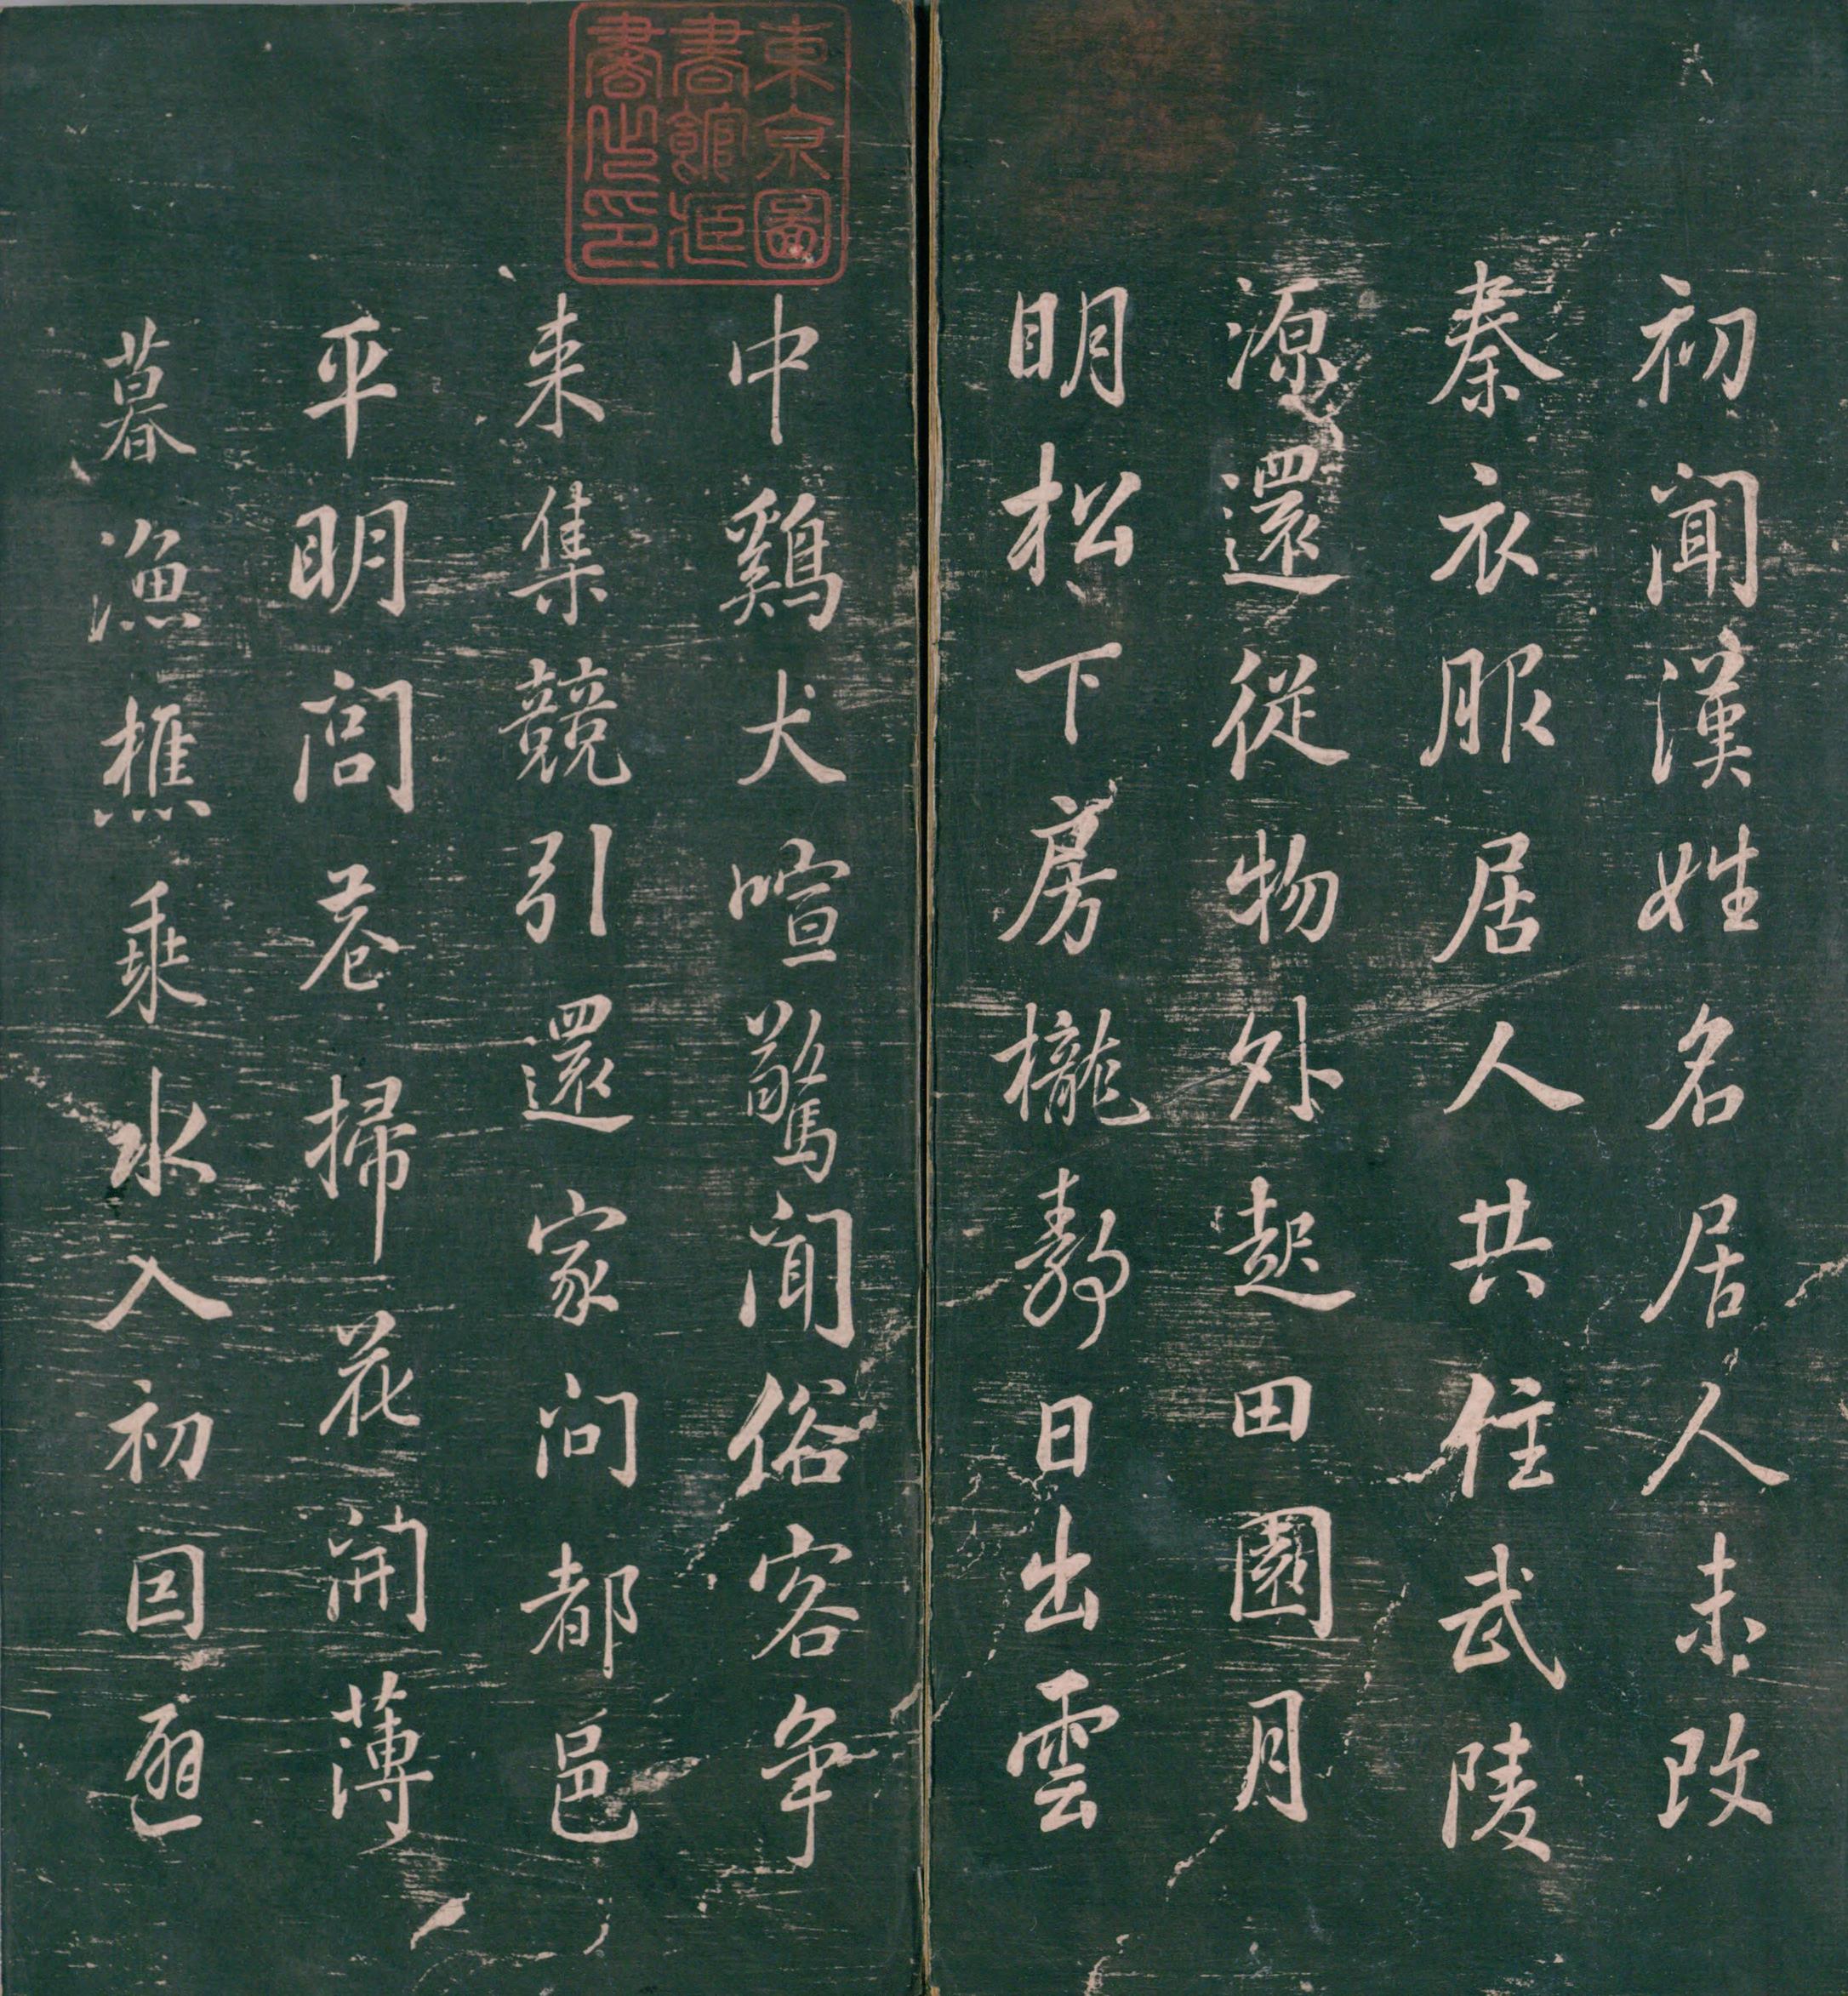 東京圖
書館藏
書之印
初聞漢姓名居人未改
秦衣服居人共住武陵
源還從物外起田園月
明松下房櫳靜日出雲
中鷄犬喧驚聞俗客争
来集競引還家問都邑
平明閭巷掃花開薄
暮漁樵乗水入初因避